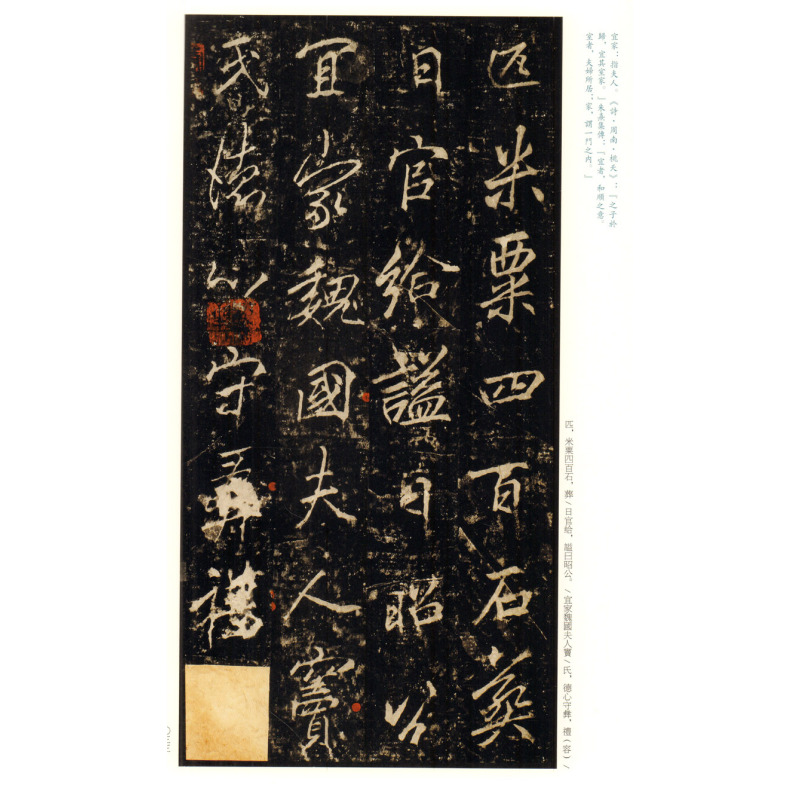 宜家：指夫人。《詩·周南·桃夭》：「之子於
歸，宜其室家。」朱熹集傳：「宜者，和順之意。
室者，夫婦所居；家，謂一門之内。」
匹米粟四百石葬
日官給謚曰昭公
宜家魏國夫人竇
氏德心守彝禮
匹，米粟四百石，葬／日官給，謚曰昭公。／宜家魏國夫人竇／氏，德心守彝，禮（容）／